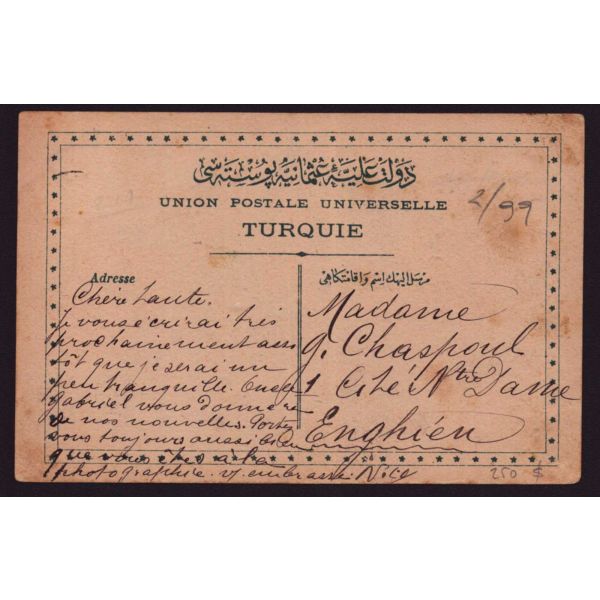 دولت علیۀ عثمانیه پوسته سی
UNION POSTALE UNIVERSELLE
2/99
TURQUIE
Adresse
مرسل الیهك اسم و اقامتكاهی
Chère tante.
Je vous écrirai très
prochainement aus
tôt que je serai un
peu tranquille. Oncle
gabriel vous donnera
de nos nouvelles. Portez
vous toujours aussi bien
que vous êtes à la
photographie. v. embrasse
Madame
g. Chaspoul
1 Cité Ntre Dame
Enghien
250 $